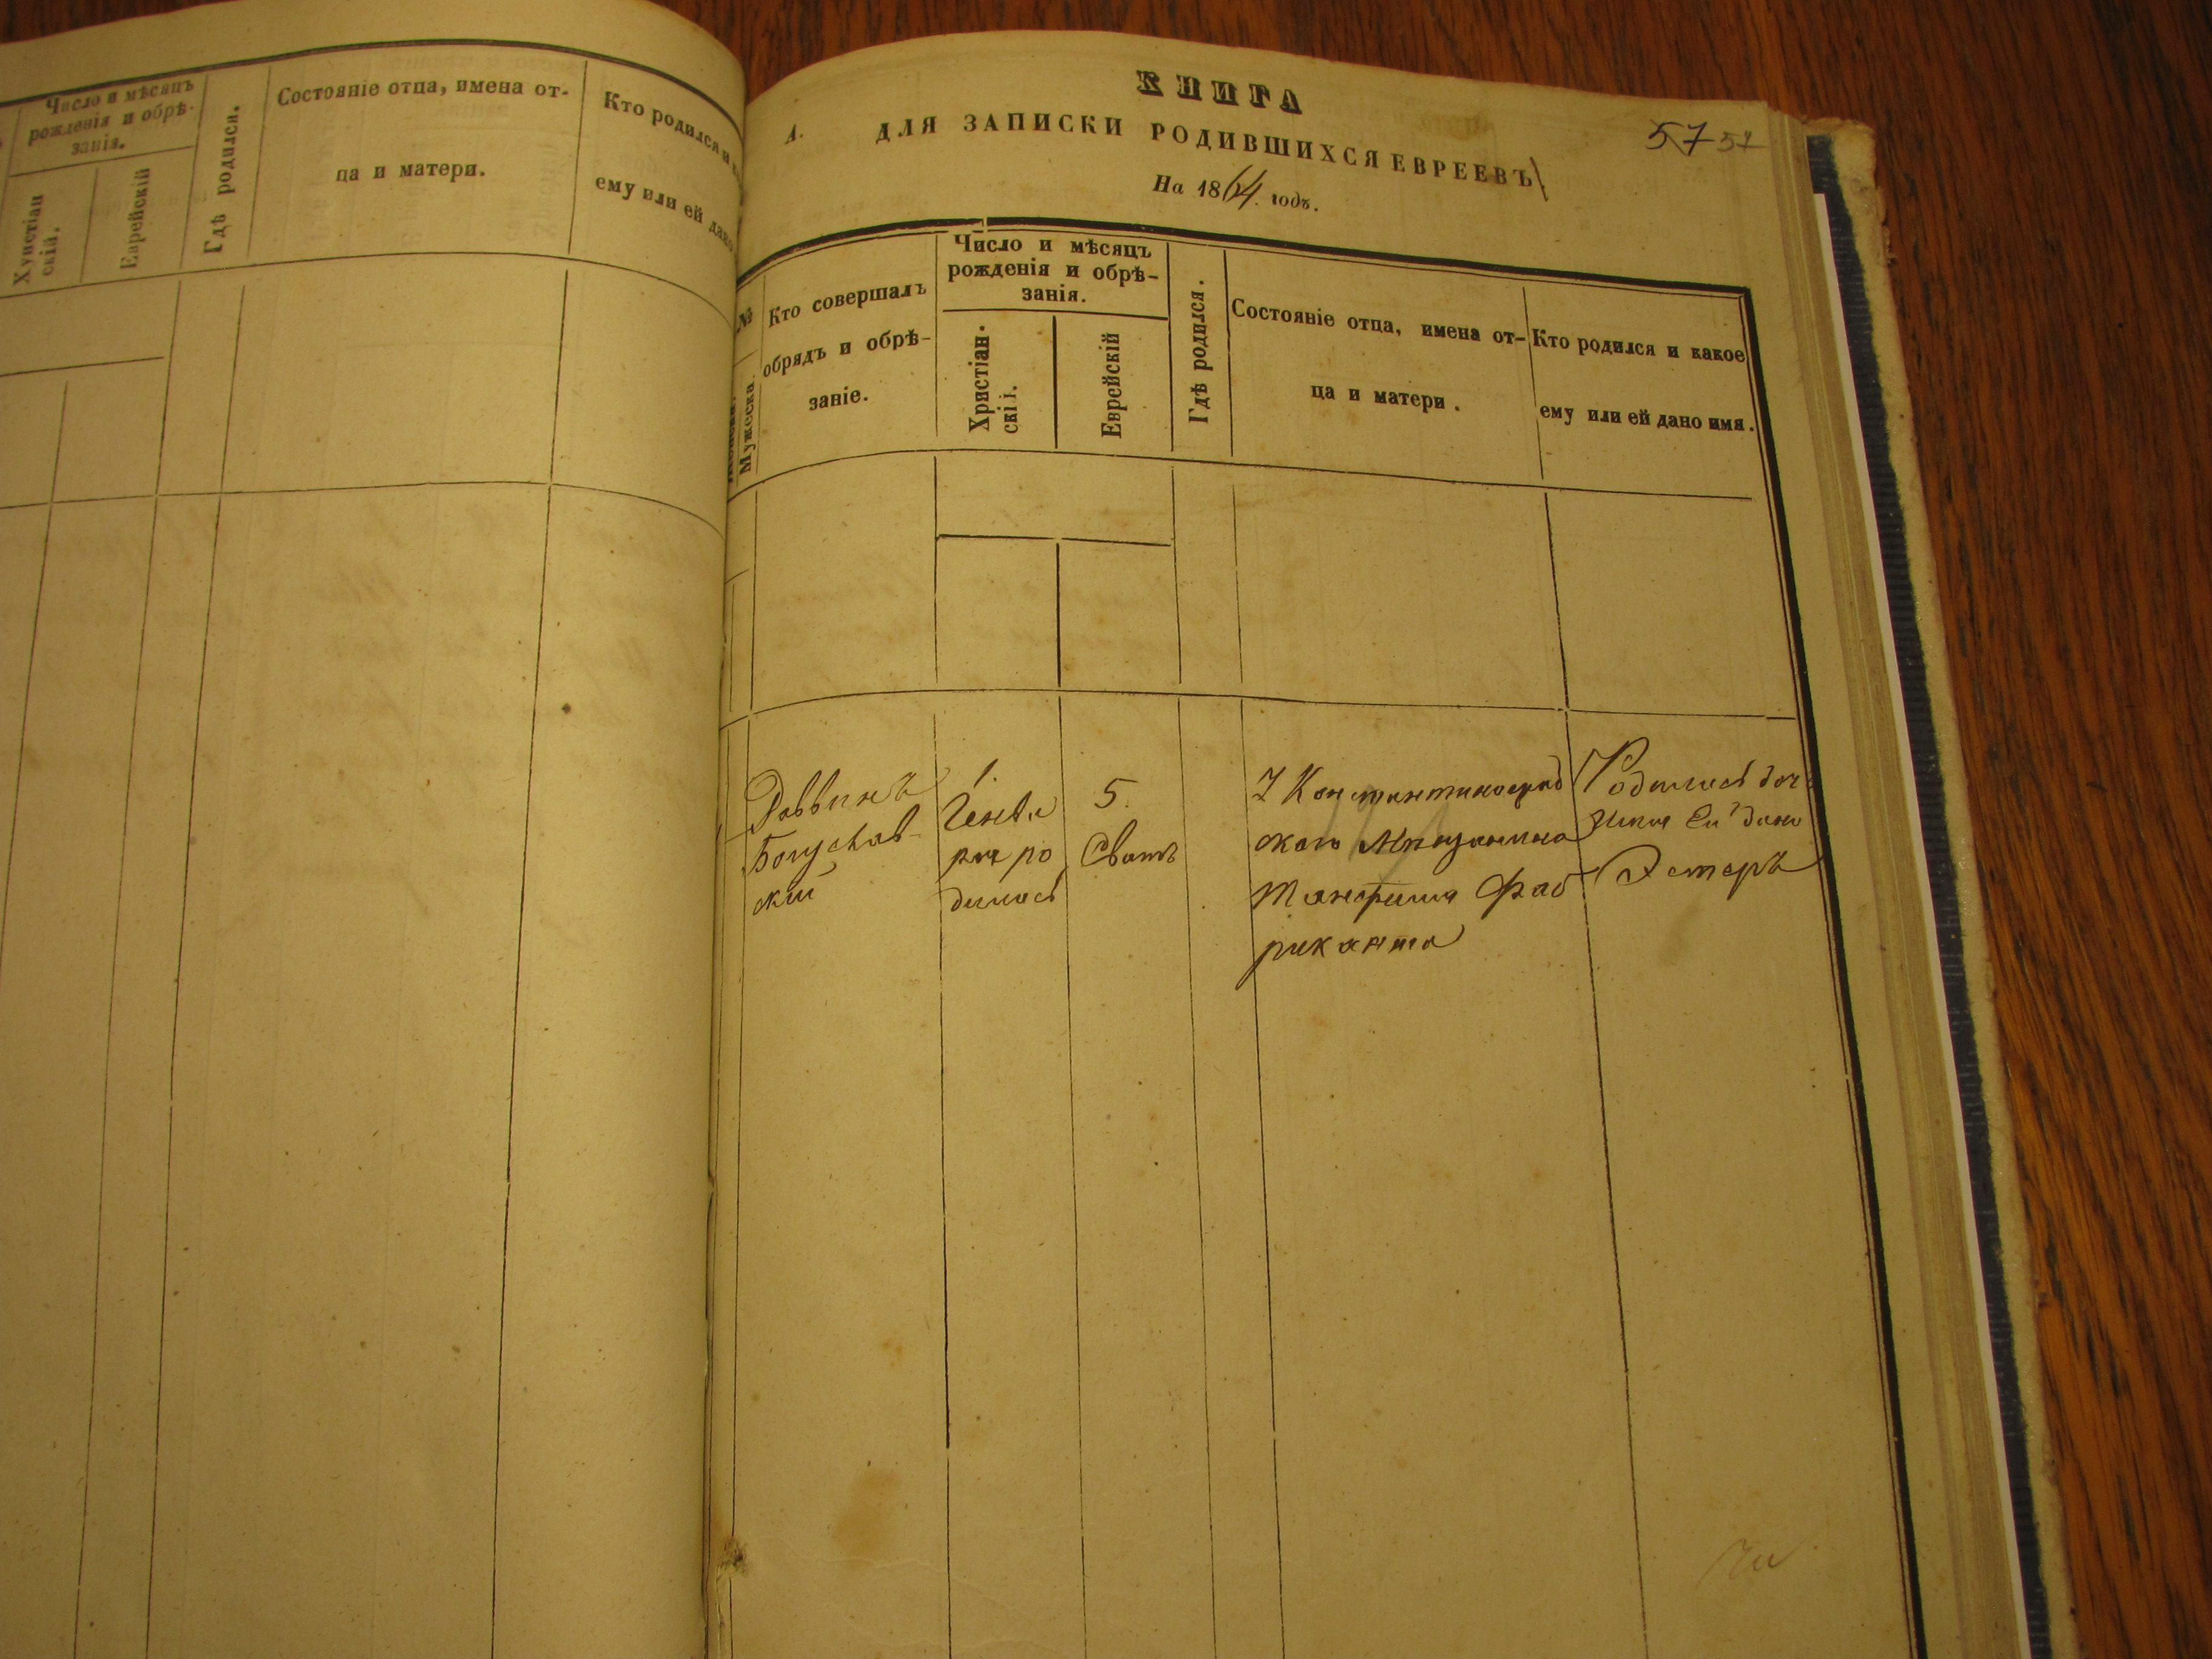 Число и мѣсяцъ
рожденія и обрѣ-
занія.
Христіан
скій.
Еврейскій
Гдѣ родился.
Состояніе отца, имена от-
ца и матери.
Кто родился и
ему или ей дано
КНИГА
А.
ДЛЯ ЗАПИСКИ РОДИВШИХСЯ ЕВРЕЕВЪ
На 1864. годъ.
57 57
№
Мужеска.
Кто совершалъ
обрядъ и обрѣ-
заніе.
Число и мѣсяцъ
рожденія и обрѣ-
занія.
Христіан.
скі і.
Еврейскій
Гдѣ родился.
Состояніе отца, имена от-
ца и матери.
Кто родился и какое
ему или ей дано имя.
Богуслав-
скій
1.
Генва
ря ро
дилась
5.
Сватъ
Константиноград
скаго
Фаб
риканта
Родилась доч
имя Ей дано
Эстеръ